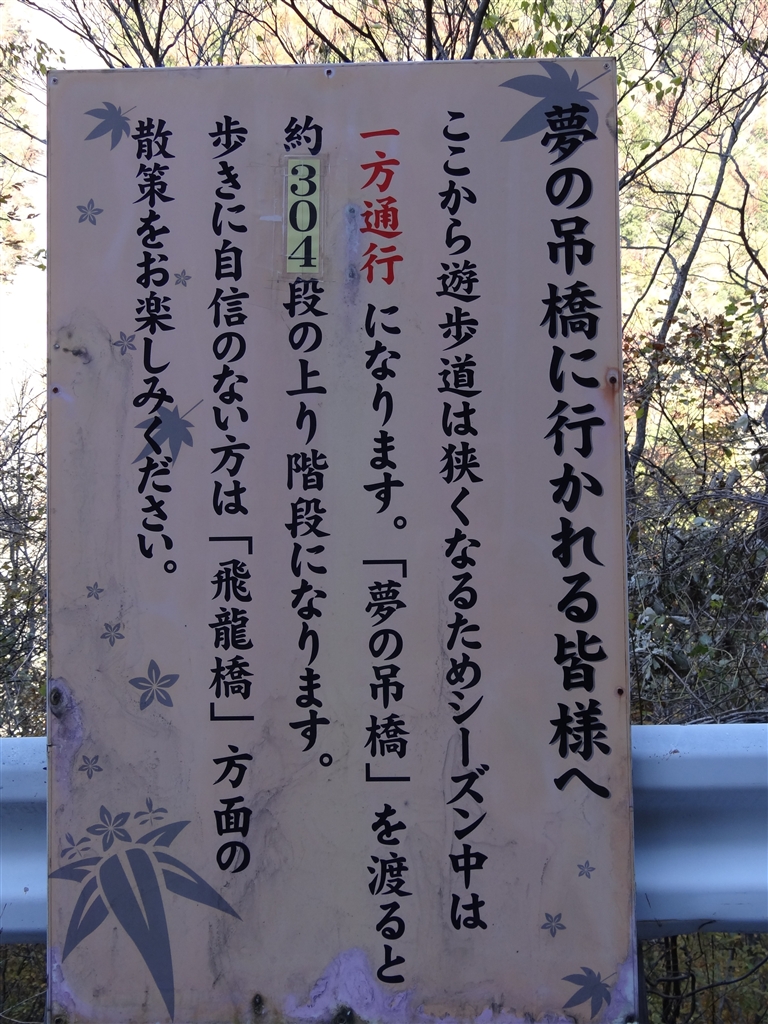 夢の吊橋に行かれる皆様へ
ここから遊歩道は狭くなるためシーズン中は
一方通行になります。「夢の吊橋」を渡ると
約304段の上り階段になります。
歩きに自信のない方は「飛龍橋」方面の
散策をお楽しみください。